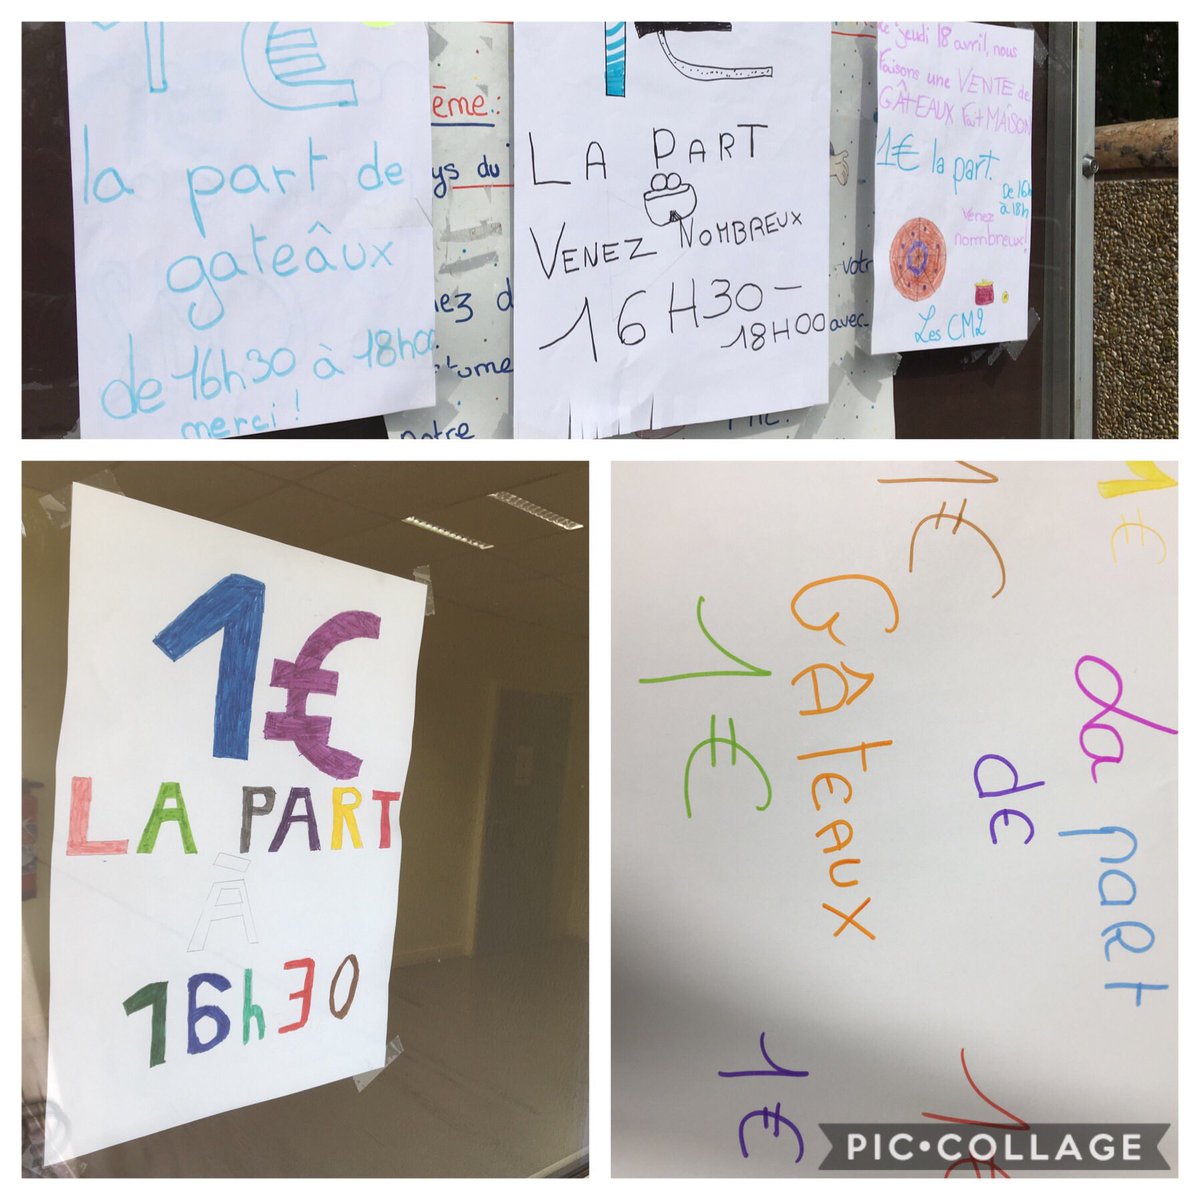 1€
la part de
gateâux
de 16h30 à 18h00
merci !
ème :
ys du
ez d
tume
notre
1€
LA PART
VENEZ NOMBREUX
16H30-
18H00
votr
avec
Ce jeudi 18 avril, nous
faisons une VENTE de
GÂTEAUX fait MAISON
1€ la part.
De 16h
à 18h
Venez
nombreux!
Les CM2
1€
LA PART
À
16h30
1€
1€
la part
de
GÂTEAUX
1€
1€
1€
PIC•COLLAGE